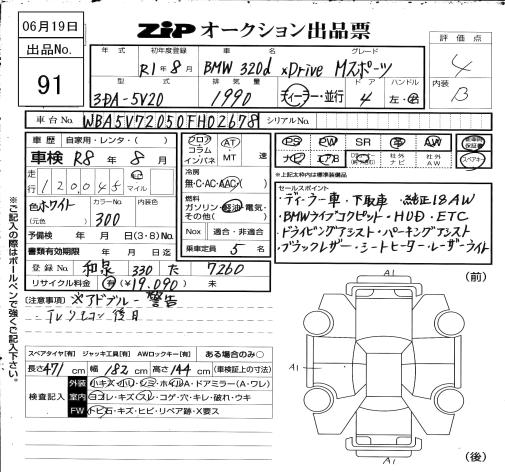 06月19日
ZIP オークション出品票
出品No.
91
評価点
4
内装
B
年式 初年度登録 車名 グレード
R1年8月 BMW 320d xDrive Mスポーツ
型式 排気量 ドア ハンドル
3DA-5V20 1990 ディーラー・並行 4 左・右
車台No. WBA5V72050FH02678 シリアルNo.
車歴 自家用・レンタ・( )
車検 R8年8月
走行 120045 Km マイル
色 ホワイト カラーNo. 内装色
(元色) 300
予備検 年 月 日(3・8)No.
書類有効期限 年 月 日迄
登録No. 和泉 330 た 7260
リサイクル料金 有(¥19,090) 未
フロア コラム インパネ AT MT 速
冷房 無・C・AC・AAC( )
燃料
ガソリン・軽油・電気・
その他( )
Nox 適合・非適合
乗車定員 5 名
PS PW SR 革 AW
ナビ エアB 社外ナビ 社外AW スペアキー
*上記太枠内は標準装備品
セールスポイント
・ディーラー車・下取車・純正18AW
・BMWライブコクピット・HUD・ETC
・ドライビングアシスト・パーキングアシスト
・ブラックレザー・シートヒーター・レーザーライト
(注意事項) ※アドブルー警告
・TVリモコン後日
ご記入の際はボールペンで強くご記入下さい。
スペアタイヤ[有] ジャッキ工具[有] AWロックキー[有] ある場合のみ○
長さ471cm 幅182cm 高さ144cm (車検証上の寸法)
検査記入
外装 小キズ・小凹・シミ・ホイルA・ドアミラー(A・ワレ)
室内 ヨゴレ・キズ・スレ・コゲ・穴・キレ・破れ・ウキ
FW トビ石・キズ・ヒビ・リペア跡・X要ス
A1
(前)
A1
A1
(後)